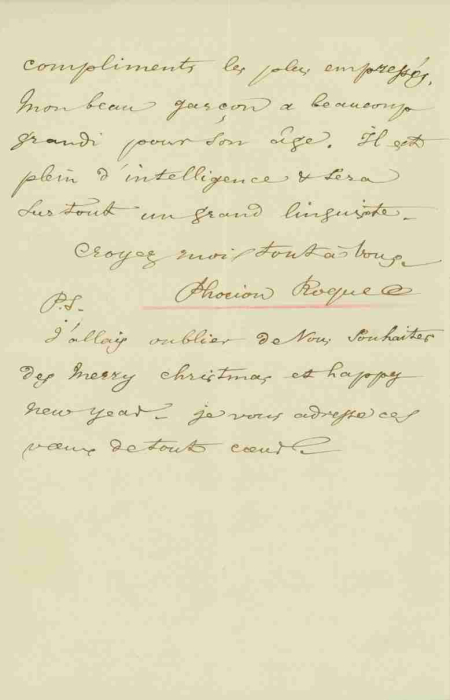 compliments les plus empressés.
Mon beau garçon a beaucoup
grandi pour son âge. Il est
plein d'intelligence & sera
surtout un grand linguiste.
Croyez moi tout à vous.
Phocion Roque
P.S.
J'allais oublier de vous souhaiter
des Merry christmas et happy
new year. je vous adresse ces
vœux de tout cœur.